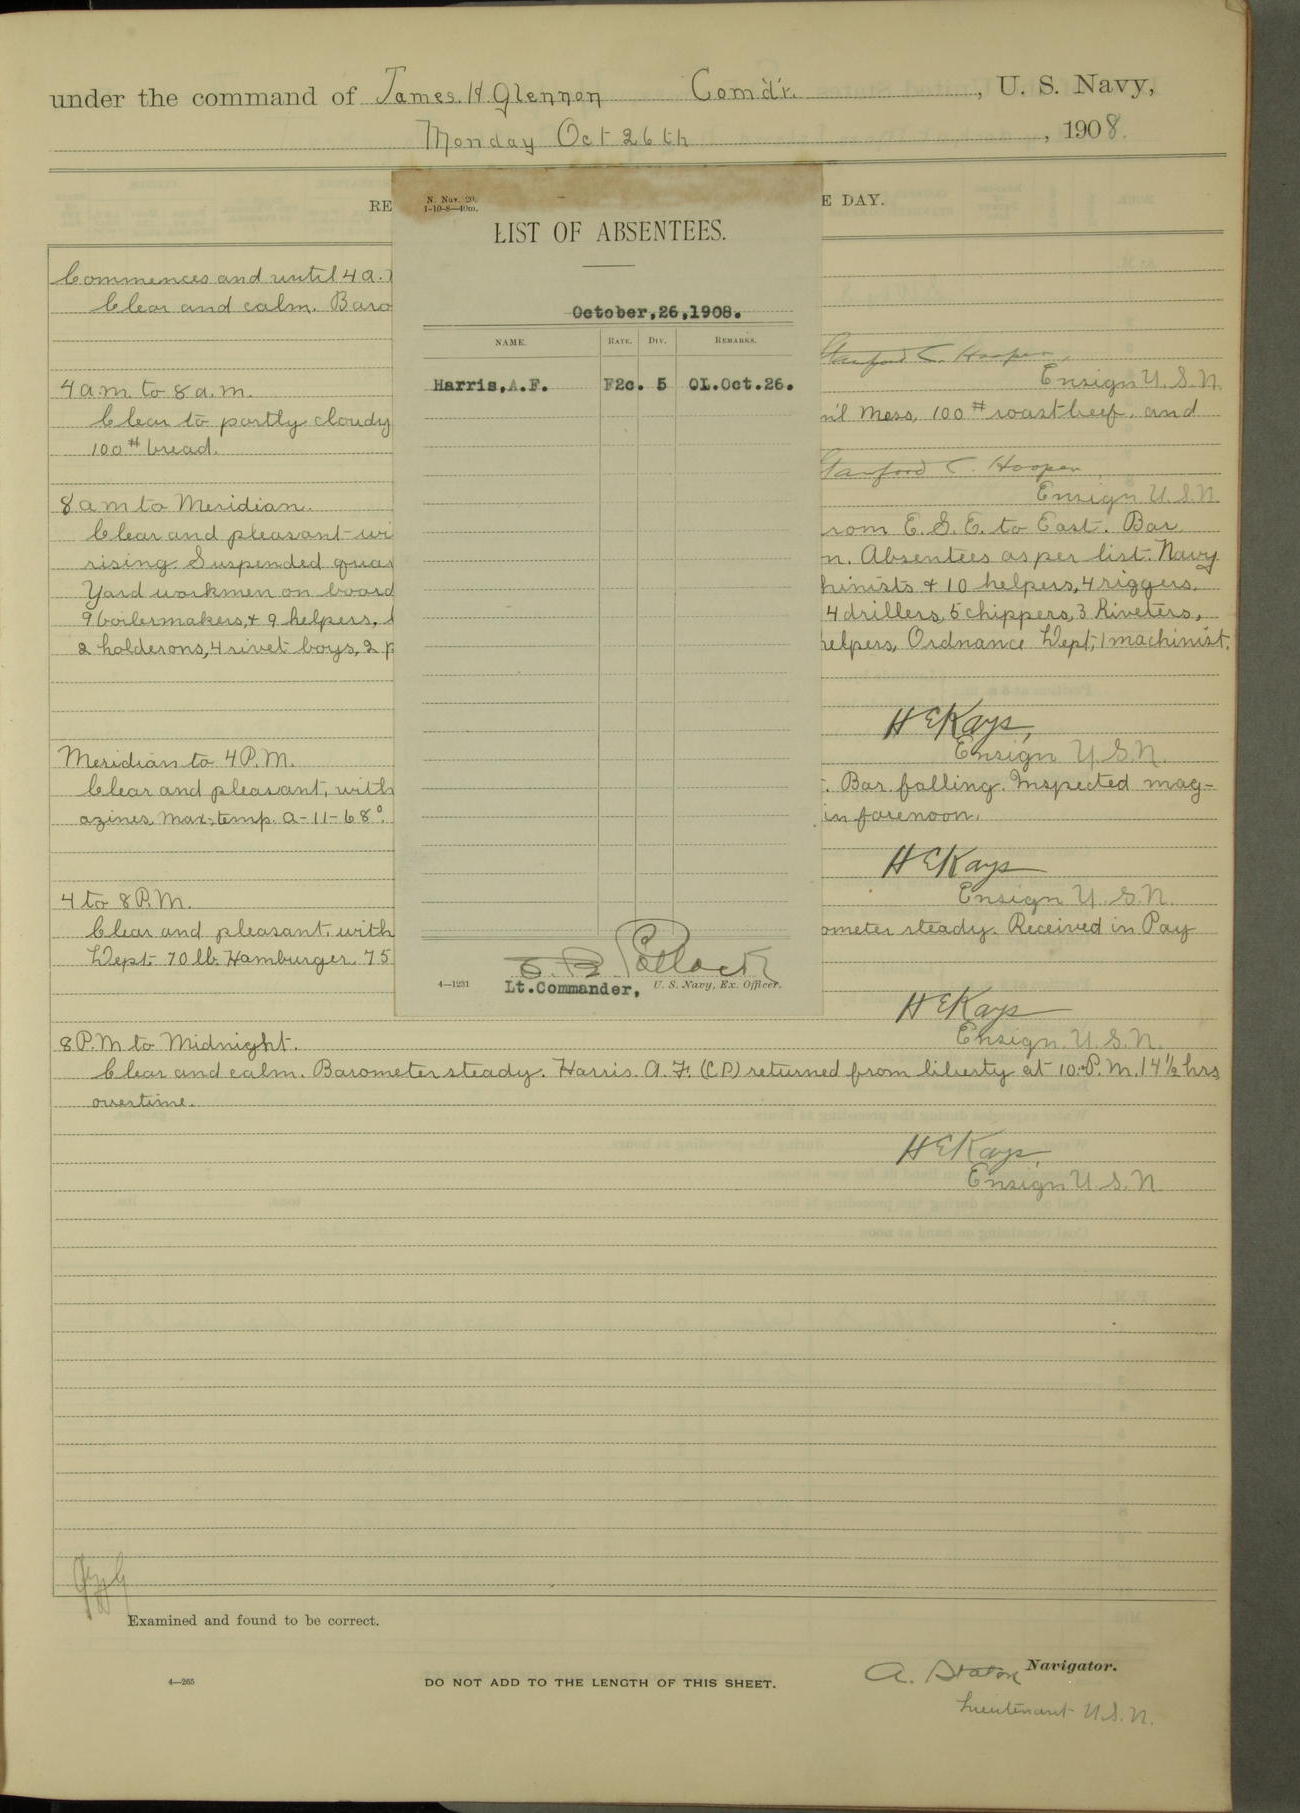 under the command of James. H. Glennon Com'd'r. , U. S. Navy,
Monday Oct 26th , 1908.
RE
E DAY.
N. Nav. 20.
1-10-8—40m.
LIST OF ABSENTEES.
October,26,1908.
NAME. RATE. DIV. REMARKS.
Harris,A.F. F2c. 5 OL.Oct.26.
Lt.Commander, U. S. Navy, Ex. Officer.
4—1231
Commences and until 4 a.
Clear and calm. Baro
Stanford C. Hooper,
Ensign U.S.N.
4 a m. to 8 a. m.
Clear to partly cloudy
n'l Mess, 100 # roast beef. and
100 # bread.
Stanford C. Hooper
Ensign U.S.N.
8 a m to Meridian.
Clear and pleasant wi
rom E.S.E. to East. Bar
rising. Suspended
n. Absentees as per list. Navy
Yard workmen on board
hinists + 10 helpers, 4 riggers.
9 boilermakers, + 9 helpers,
4 drillers, 5 chippers, 3 Riveters,
2 holderons, 4 rivet boys, 2 p
helpers, Ordnance Dept; 1 machinist.
H E Kays,
Ensign U.S.N.
Meridian to 4 P.M.
Clear and pleasant, with
. Bar. falling. Inspected mag-
azines, max. temp. A-11-68°.
in forenoon.
H E Kays
Ensign U.S.N.
4 to 8 P.M.
Clear and pleasant, with
ometer steady. Received in Pay
Dept. 70 lb. Hamburger 75
H E Kays
Ensign. U.S.N.
8 P.M to Midnight.
Clear and calm. Barometer steady. Harris. A. F. (C P) returned from liberty at 10: P.M. 14 1/2 hrs
overtime.
H E Kays,
Ensign U.S.N
Examined and found to be correct.
A. Staton Navigator.
4—265
DO NOT ADD TO THE LENGTH OF THIS SHEET.
Lieutenant U.S.N.